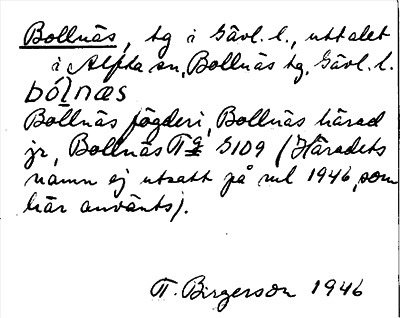 Bollnäs, tg i Gävl. l., uttalet
i Alfta sn, Bollnäs tg, Gävl. l.
bólnæs
Bollnäs fögderi, Bollnäs härad
jr, Bollnäs Tg S109 (Häradets
namn ej utsatt på rul 1946, som
här använts).
T. Birgerson 1946